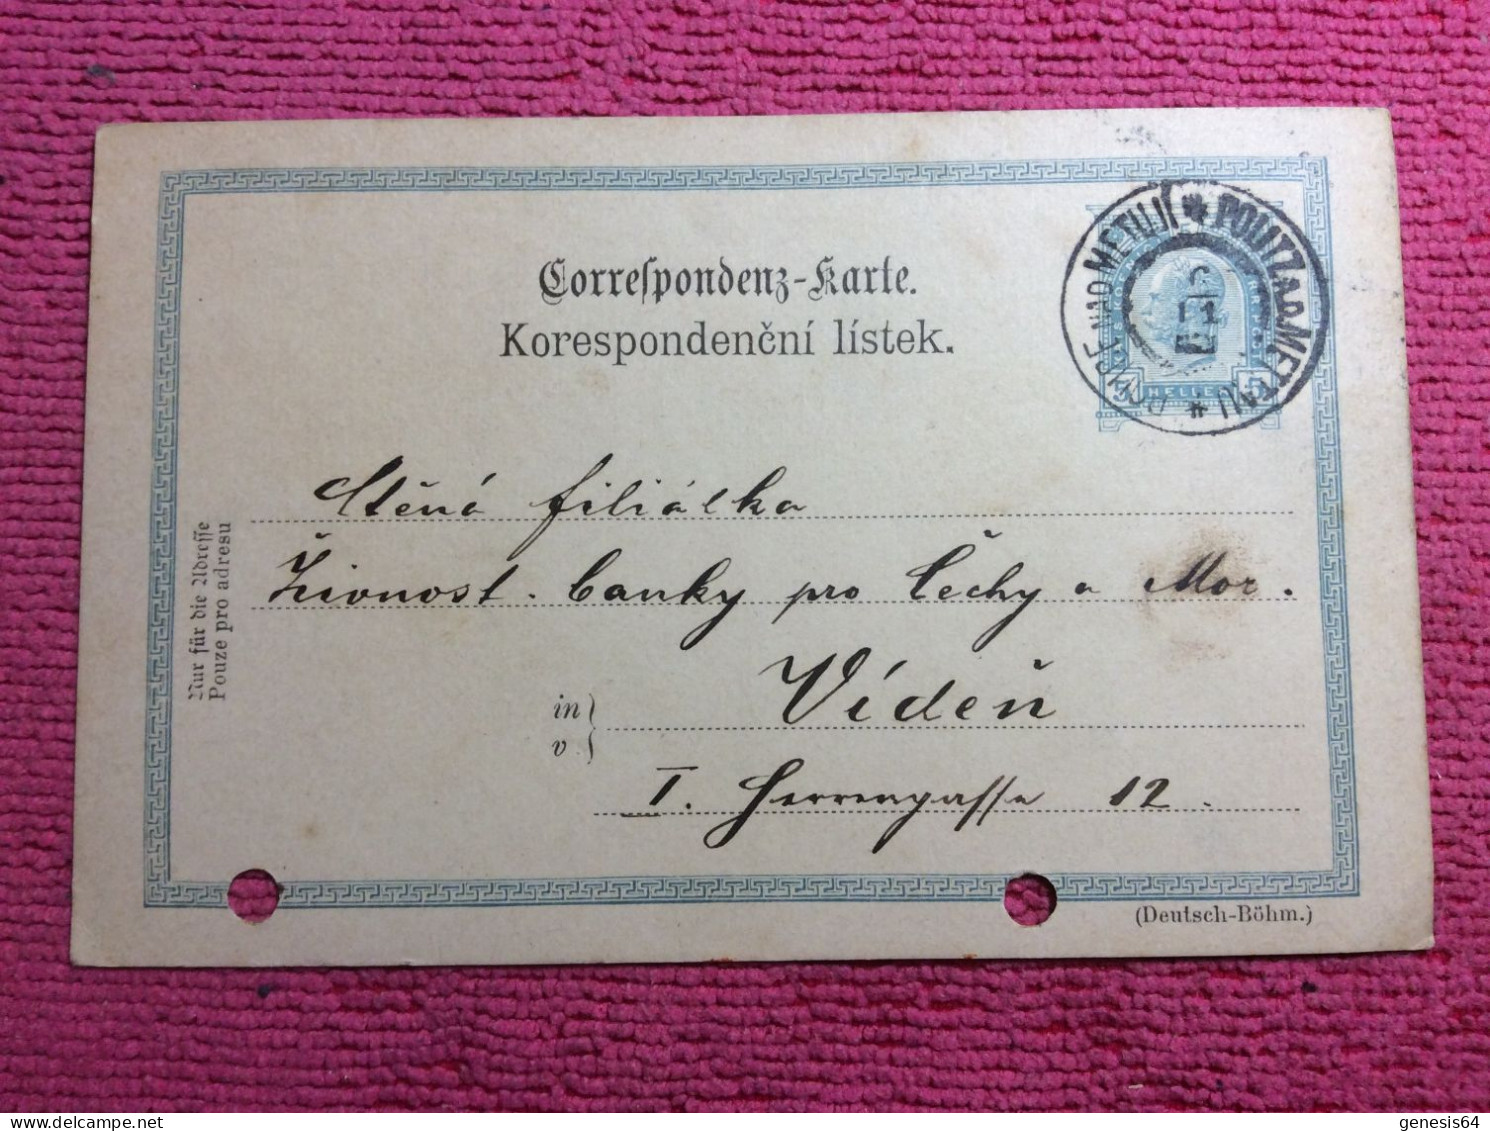 Correſpondenz-Karte.
Korespondenční lístek.
POLICE NAD METUJÍ * POLITZ A.D. METTAU *
5 HELLER 5
Ctěná filiálka
Živnost. banky pro Čechy a Mor.
in
v
Vídeň
I. Herrengasse 12.
Nur für die Adreſſe
Pouze pro adresu
(Deutsch-Böhm.)
genesis64